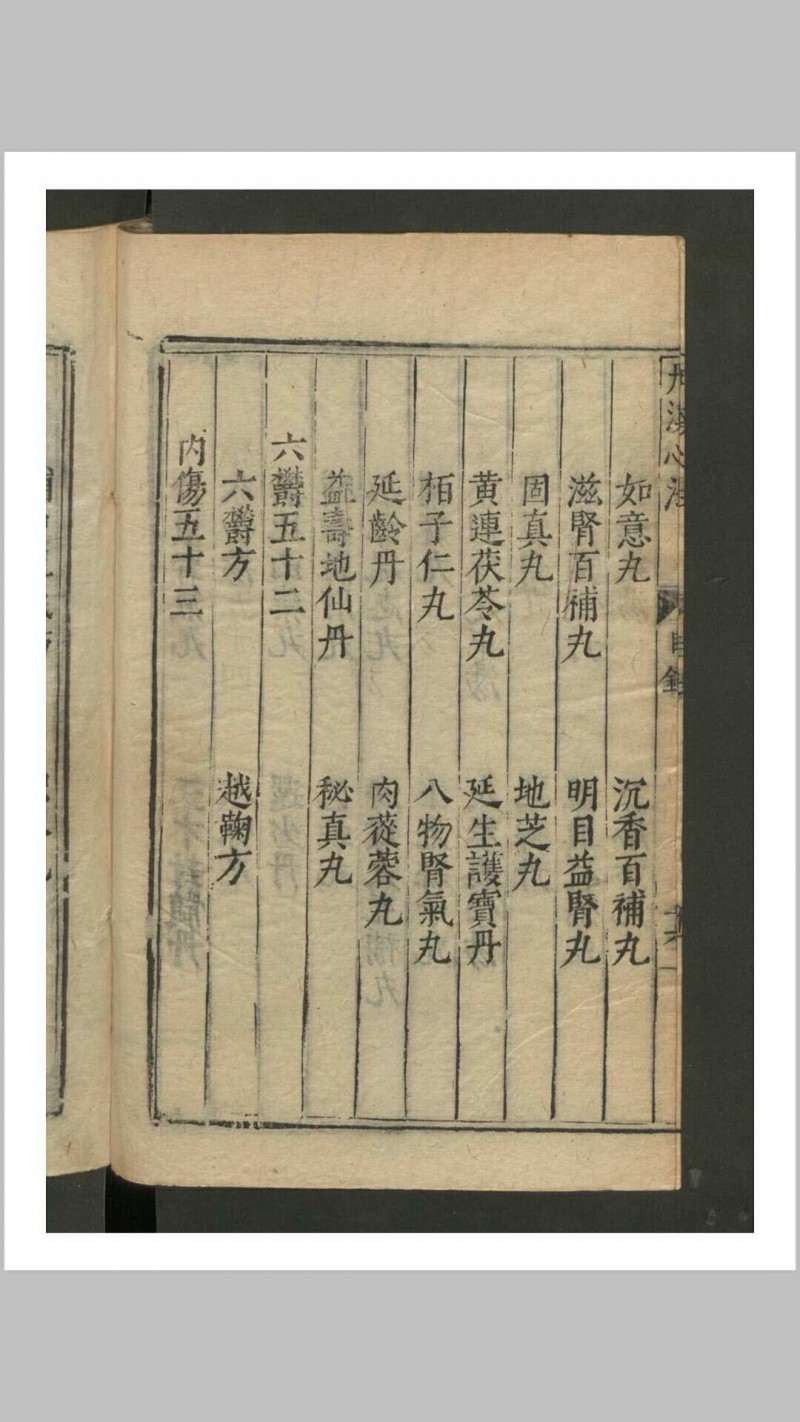 丹溪心法 目錄
如意丸 沉香百補丸
滋腎百補丸 明目益腎丸
固真丸 地芝丸
黃連茯苓丸 延生護寶丹
栢子仁丸 八物腎氣丸
延齡丹 肉蓯蓉丸
益壽地仙丹 秘真丸
六欝五十二
六欝方 越鞠方
內傷五十三